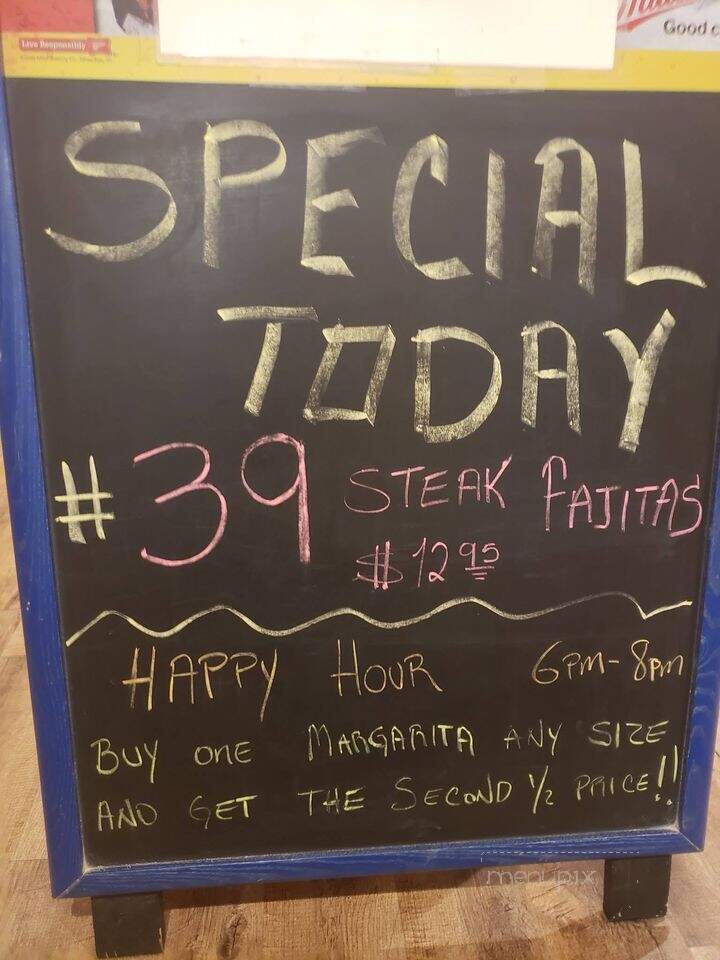 Live Responsibly
Good c
SPECIAL
TODAY
#39 STEAK FAJITAS
$12 95
HAPPY HOUR 6PM-8PM
BUY ONE MARGARITA ANY SIZE
AND GET THE SECOND 1/2 PRICE!!
menupix